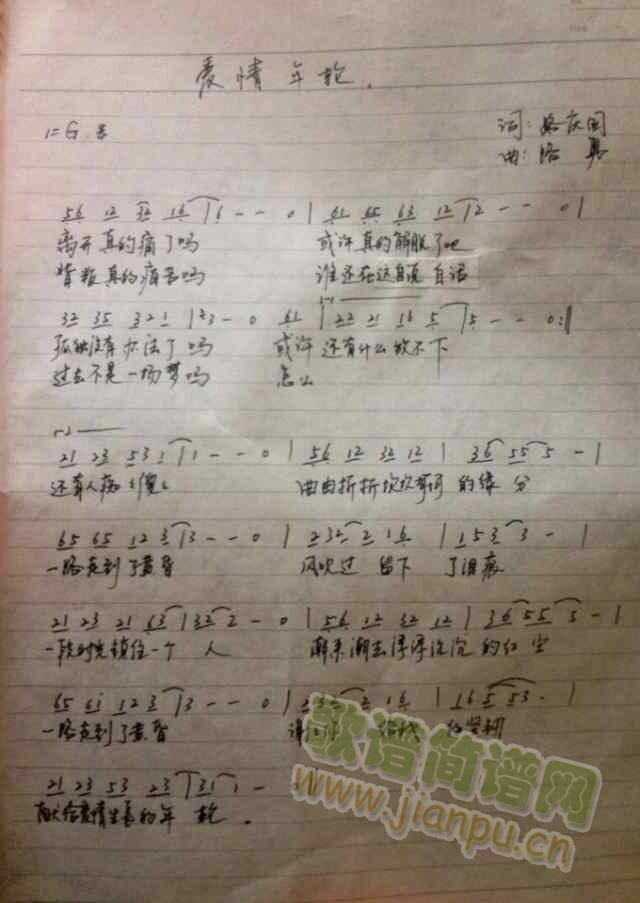 爱情年轮.
1=G
词:
曲:洛
56 12 32 16 | 6 - - 0 | 61 65 63 12 | 2 - - 0 |
离开真的痛了吗 或许真的解脱了吧
背叛真的痛苦吗 谁还在这自说自话
32 35 321 | 23 - 0 61 | 22 21 16 5 | 5 - - 0 :|
孤独没有办法了吗 或许还有什么放不下
过去不是一场梦吗 怎么
21 23 531 | 1 - - 0 | 56 12 32 12 | 36 55 5 - |
还有人 曲曲折折坎坎坷坷的缘分
65 65 12 3 | 3 - - 0 | 232 2 16 | 153 3 - |
一路走到了黄昏 风吹过 留下 了泪痕
21 23 21 63 | 32 2 - 0 | 56 12 32 12 | 36 55 5 - |
一段时光锁住一个人 潮来潮去浮浮沉沉的红尘
65 61 12 3 | 3 - - 0 |
一路走到了黄昏
21 23 53 23 | 31 1 -
爱情生长的年轮.
歌谱简谱网
www.jianpu.cn